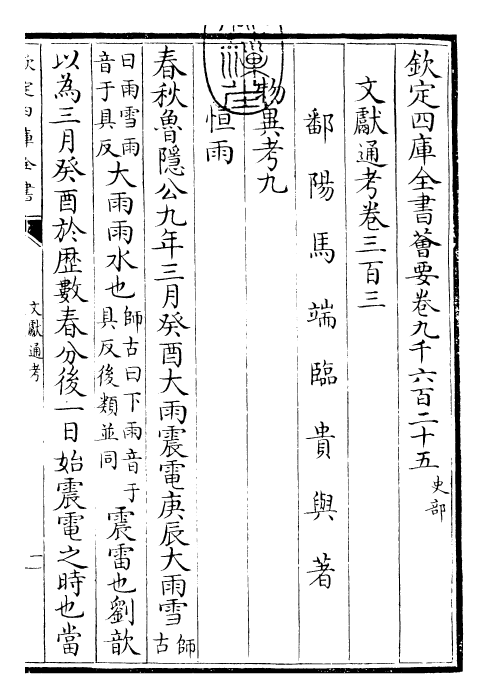 欽定四庫全書薈要卷九千六百二十五 史部
文獻通考卷三百三
鄱陽馬端臨貴與著
物異考九
恒雨
春秋魯隱公九年三月癸酉大雨震電庚辰大雨雪 師古
曰雨雪雨音于具反 大雨雨水也 師古曰下雨音于具反後類並同 震雷也劉歆
以為三月癸酉於歴數春分後一日始震電之時也當
欽定四庫全書
文獻通考
一